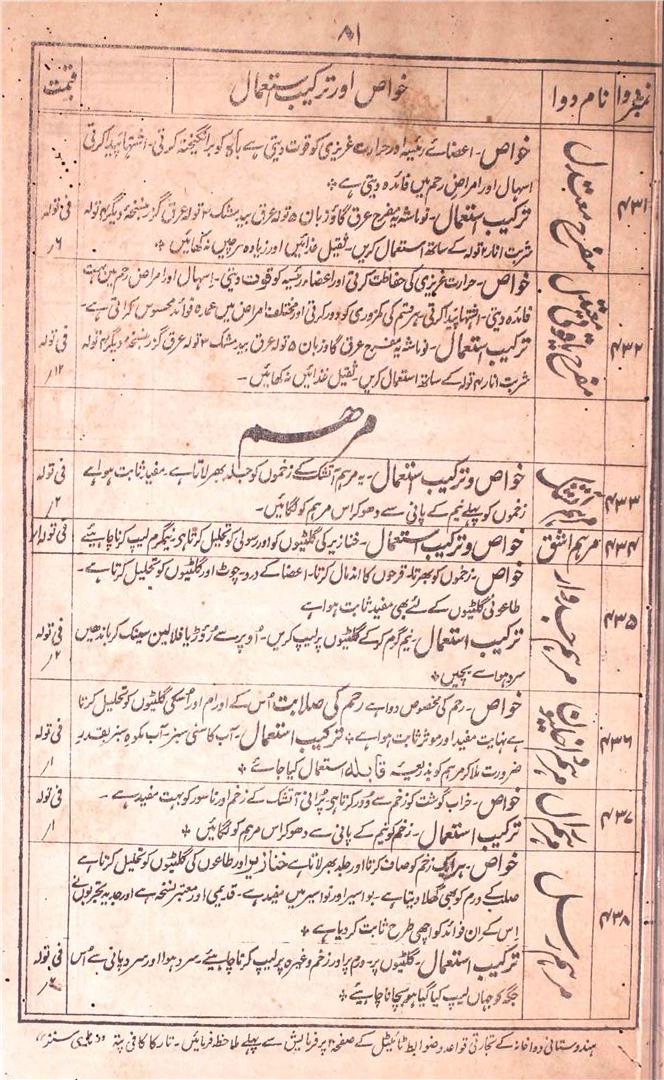 ۸۱
نمبر دوا نام دوا خواص اور ترکیب استعمال قیمت
۴۳۱ مفرح معتدل خواص۔ اعضائے رئیسہ اور حرارت غریزی کو قوت دیتی ہے باہ کو برانگیختہ کرتی۔ اشتہا پیدا کرتی
اسہال اور امراض رحم میں فائدہ دیتی ہے
ترکیب استعمال۔ نو ماشہ یہ مفرح عرق گاؤزبان ۵ تولہ عرق بید مشک ۲ تولہ عرق گزر بنسخہ دیگر ۴ تولہ فی تولہ
شربت انار ۲ تولہ کے ساتھ استعمال کریں۔ ثقیل غذائیں اور زیادہ سرد چیزیں نہ کھائیں ۶ر
۴۳۲ مفرح یاقوتی معتدل خواص۔ حرارت غریزی کی حفاظت کرتی اور اعضاء رئیسہ کو قوت دیتی۔ اسہال اور امراض رحم میں بہت
فائدہ دیتی۔ اشتہا پیدا کرتی ہر قسم کی کمزوری کو دور کرتی اور مختلف امراض میں عمدہ فوائد محسوس کراتی ہے۔
ترکیب استعمال۔ نو ماشہ یہ مفرح عرق گاؤزبان ۵ تولہ عرق بید مشک ۲ تولہ عرق گزر بنسخہ دیگر ۴ تولہ فی تولہ
شربت انار ۲ تولہ کے ساتھ استعمال کریں۔ ثقیل غذائیں نہ کھائیں۔ ۱۲ر
مرہم
۴۳۳ مرہم آتشک خواص و ترکیب استعمال۔ یہ مرہم آتشک کے زخموں کو جلد بھر لاتا ہے۔ مفید ثابت ہوا ہے فی تولہ
زخموں کو پہلے نیم کے پانی سے دھو کر اس مرہم کو لگائیں۔ ۲ر
۴۳۴ مرہم اشق خواص و ترکیب استعمال۔ خنازیر کی گلٹیوں کو اور رسولی کو تحلیل کرتا ہے نیمگرم لیپ کرنا چاہیئے فی تولہ ۱ر
۴۳۵ مرہم جدوار خواص۔ زخموں کو بھرتا۔ قرحوں کا اندمال کرتا۔ اعضا کے درد۔ چوٹ اور گلٹیوں کو تحلیل کرتا ہے۔
طاعونی گلٹیوں کے لئے بھی مفید ثابت ہوا ہے
ترکیب استعمال۔ نیم گرم کرکے گلٹیوں پر لیپ کریں۔ اوپر سے روئڑ یا فلالین سینک کر باندھیں فی تولہ
سرد ہوا سے بچیں ۲ر
۴۳۶ مرہم داخلیون خواص۔ رحم کی مخصوص دوا ہے رحم کی صلابت اُس کے اورام اور اُسکی گلٹیوں کو تحلیل کرتا
ہے نہایت مفید اور موثر ثابت ہوا ہے ترکیب استعمال۔ آب کاسنی سبز۔ آب مکوہ سبز بقدر فی تولہ
ضرورت ملا کر مرہم کو بذریعہ قابلہ استعمال کیا جائے ۱ر
۴۳۷ مرہم رال خواص۔ خراب گوشت کو زخم سے دور کرتا ہے پرانی آتشک کے زخم اور ناسور کو بہت مفید ہے۔ فی تولہ
ترکیب استعمال۔ زخم کو نیم کے پانی سے دھو کر اس مرہم کو لگائیں ۱ر
۴۳۸ مرہم رسل خواص۔ ہر ایک زخم کو صاف کرتا اور جلد بھر لاتا ہے خنازیر اور طاعون کی گلٹیوں کو تحلیل کرتا ہے
صلب کے ورم کو بھی گھلا دیتا ہے۔ بواسیر اور نواسیر میں مفید ہے۔ قدیمی اور معتبر نسخہ ہے اور جدید تجربوں نے
اس کے ان فوائد کو اچھی طرح ثابت کردیا ہے
ترکیب استعمال۔ گلٹیوں پر۔ ورم پر اور زخم وغیرہ پر لیپ کرنا چاہیئے۔ سرد ہوا اور سرد پانی سے اُس فی تولہ
جگہ کو جہاں لیپ کیا گیا ہو بچانا چاہیئے ۲ر
ہندوستانی دواخانہ کے تجارتی قواعد و ضوابط ٹائیٹل کے صفحہ ۲ پر فرمایش سے پہلے ملاحظہ فرمائیں۔ تار کا کافی پتہ